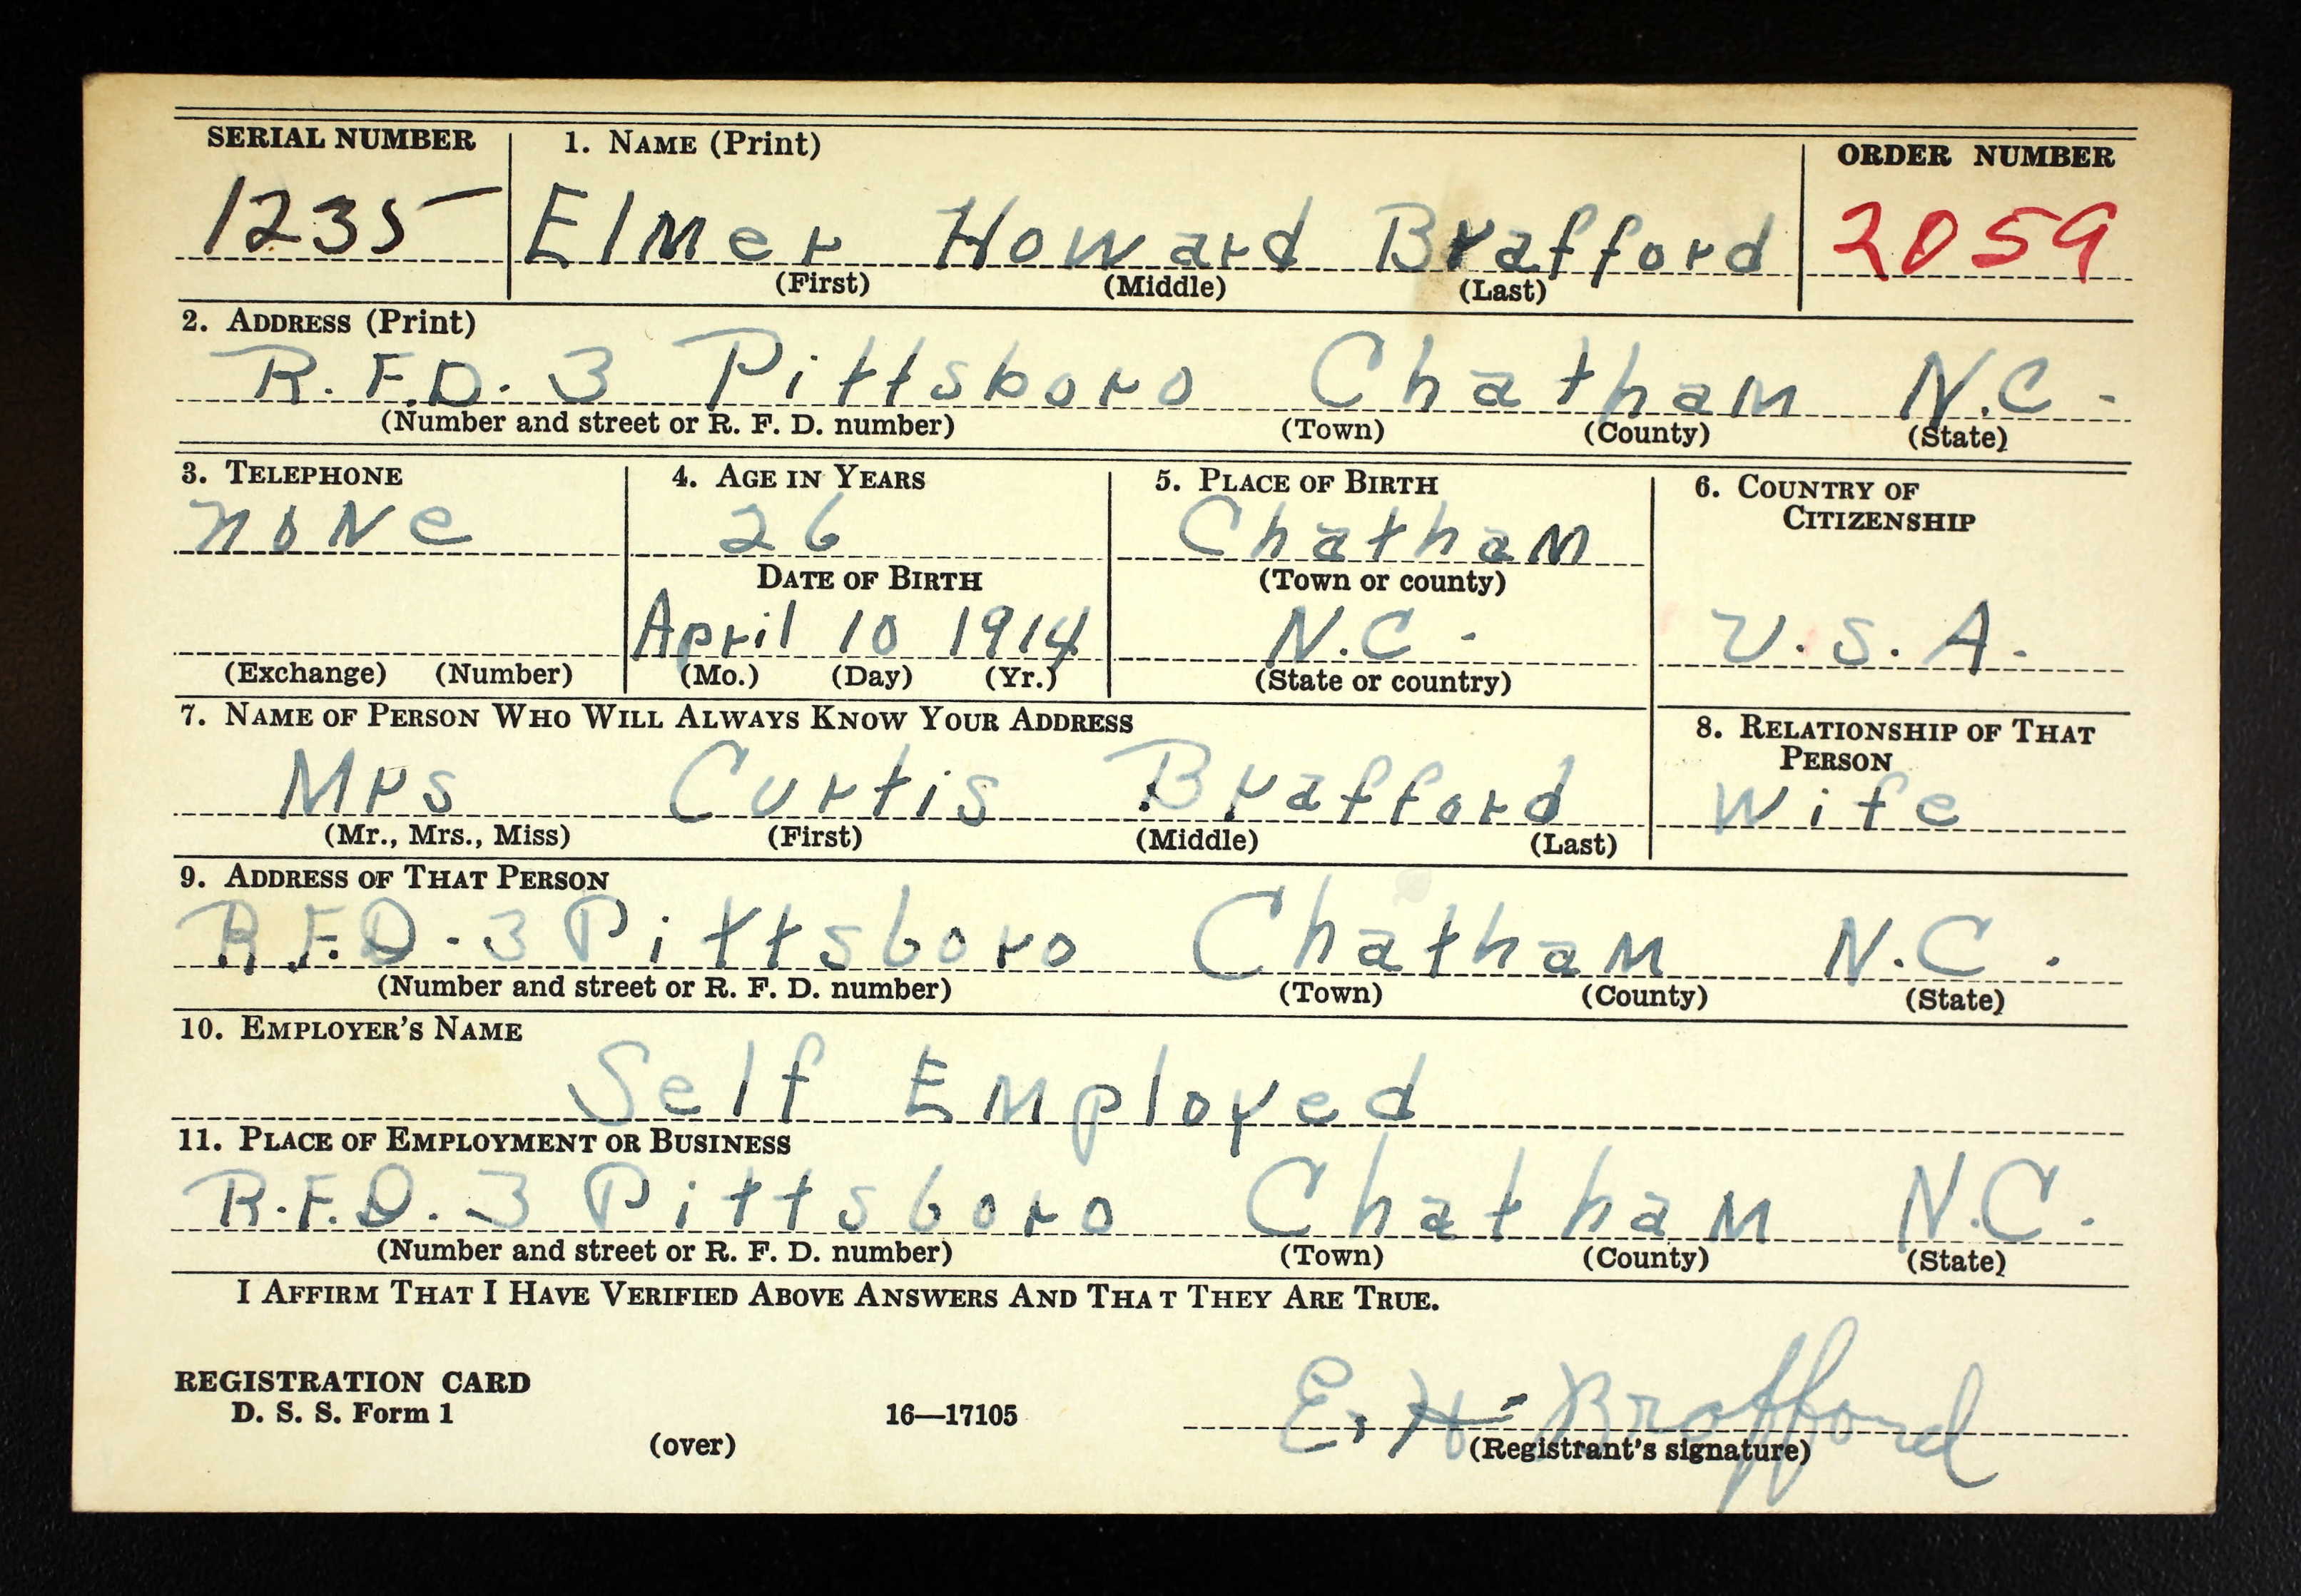 SERIAL NUMBER 1. NAME (Print) ORDER NUMBER
1235 Elmer Howard Brafford 2059
(First) (Middle) (Last)
2. ADDRESS (Print)
R.F.D. 3 Pittsboro Chatham N.C.
(Number and street or R. F. D. number) (Town) (County) (State)
3. TELEPHONE 4. AGE IN YEARS 5. PLACE OF BIRTH 6. COUNTRY OF
CITIZENSHIP
None 26 Chatham
DATE OF BIRTH (Town or county)
April 10 1914 N.C. U.S.A.
(Exchange) (Number) (Mo.) (Day) (Yr.) (State or country)
7. NAME OF PERSON WHO WILL ALWAYS KNOW YOUR ADDRESS 8. RELATIONSHIP OF THAT
PERSON
Mrs Curtis Brafford Wife
(Mr., Mrs., Miss) (First) (Middle) (Last)
9. ADDRESS OF THAT PERSON
R.F.D. 3 Pittsboro Chatham N.C.
(Number and street or R. F. D. number) (Town) (County) (State)
10. EMPLOYER'S NAME
Self Employed
11. PLACE OF EMPLOYMENT OR BUSINESS
R.F.D. 3 Pittsboro Chatham N.C.
(Number and street or R. F. D. number) (Town) (County) (State)
I AFFIRM THAT I HAVE VERIFIED ABOVE ANSWERS AND THAT THEY ARE TRUE.
REGISTRATION CARD
D. S. S. Form 1 16—17105 E. H. Brafford
(over) (Registrant's signature)